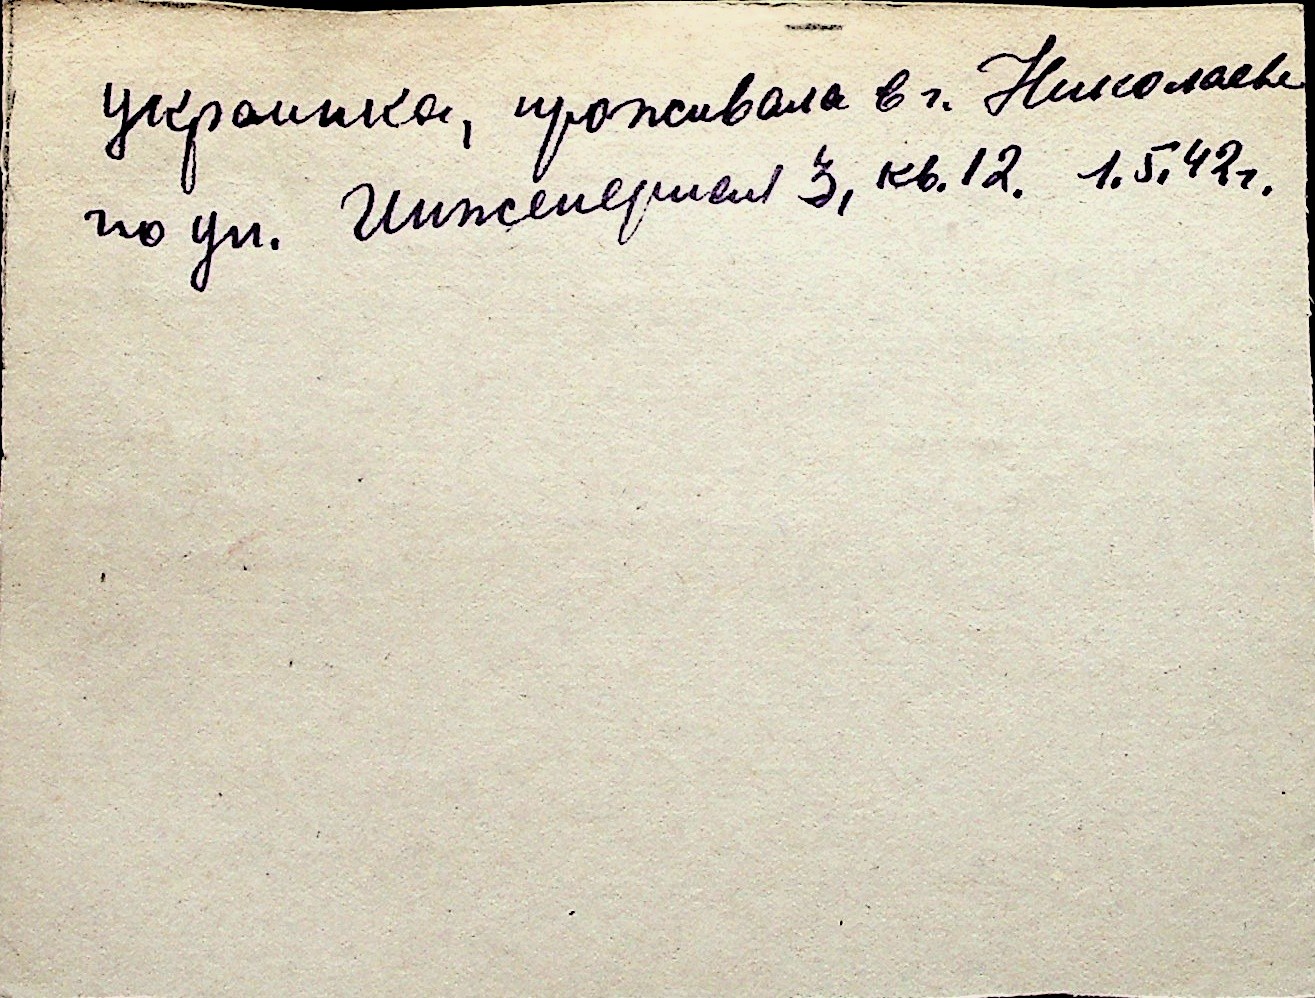 украинка, проживала в г. Николаеве
по ул. Инженерная 3, кв. 12. 1.5.42 г.